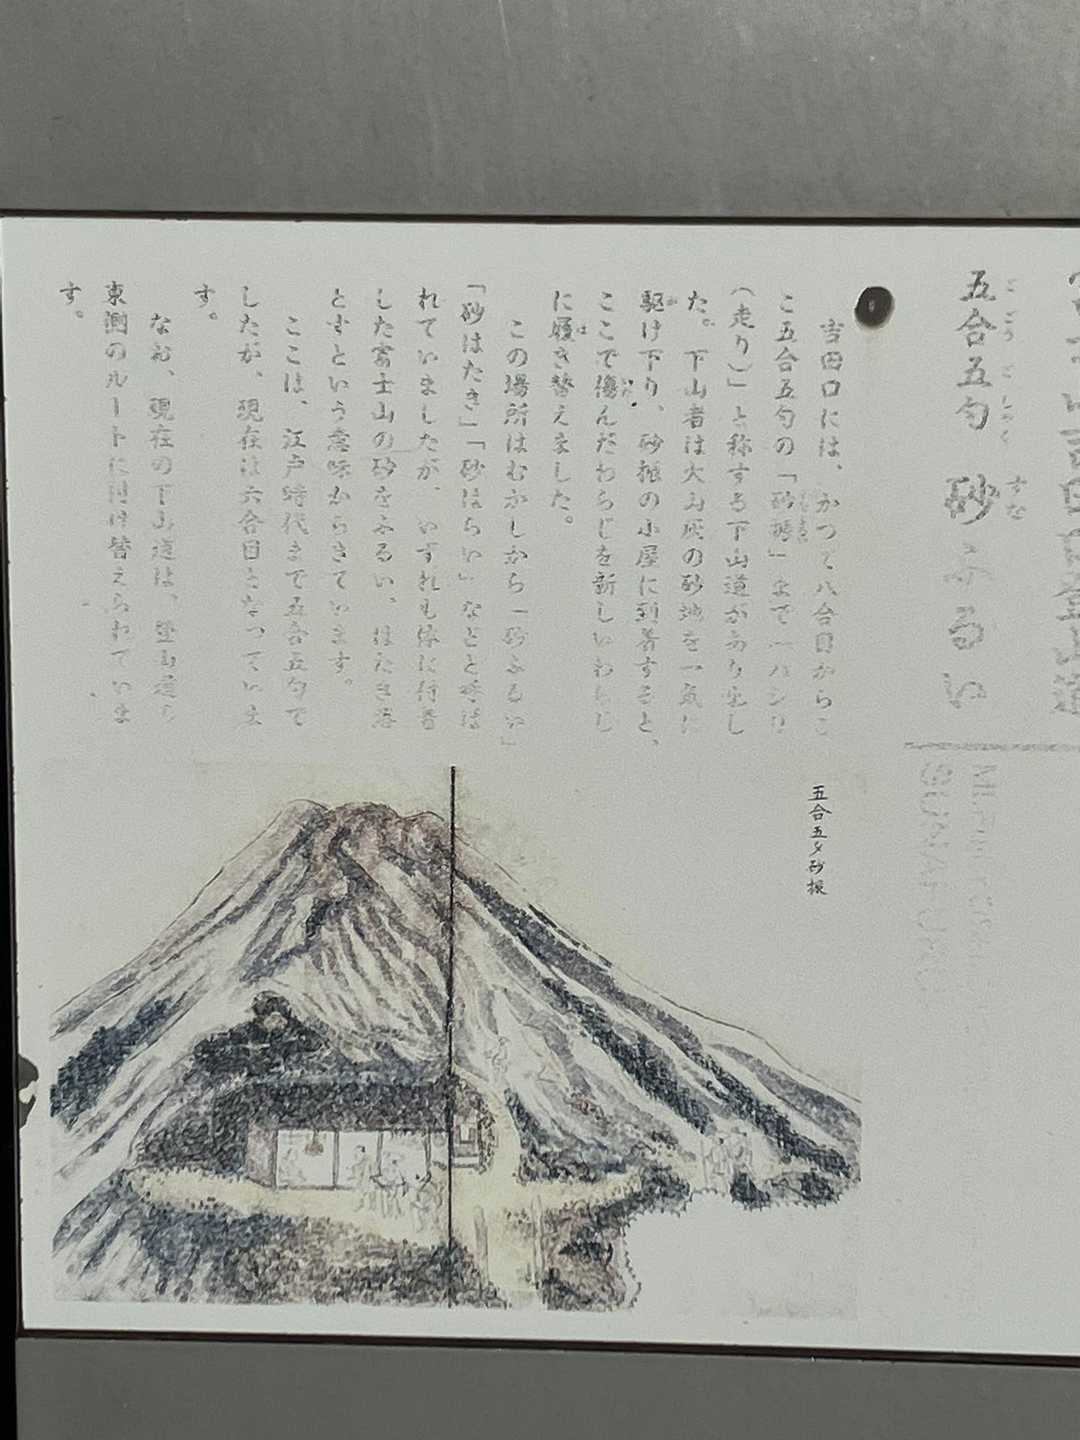 吉田口登山道
五合五勺 砂ふるい
ごごうごしゃく すな
吉田口には、かつて八合目からこ
こ五合五勺の「砂振」まで一パシリ
(走り)」と称する下山道がありまし
た。下山者は火山灰の砂地を一気に
駆け下り、砂振の小屋に到着すると、
ここで傷んだわらじを新しいわらじ
に履き替えました。
この場所はむかしから「砂ふるい」
「砂はたき」「砂はらい」などと呼ば
れていましたが、いずれも体に付着
した富士山の砂をふるい、はたき落
とすという意味からきています。
ここは、江戸時代まで五合五勺で
したが、現在は六合目となっていま
す。
なお、現在の下山道は、登山道の
東側のルートに付け替えられていま
す。
五合五夕砂振